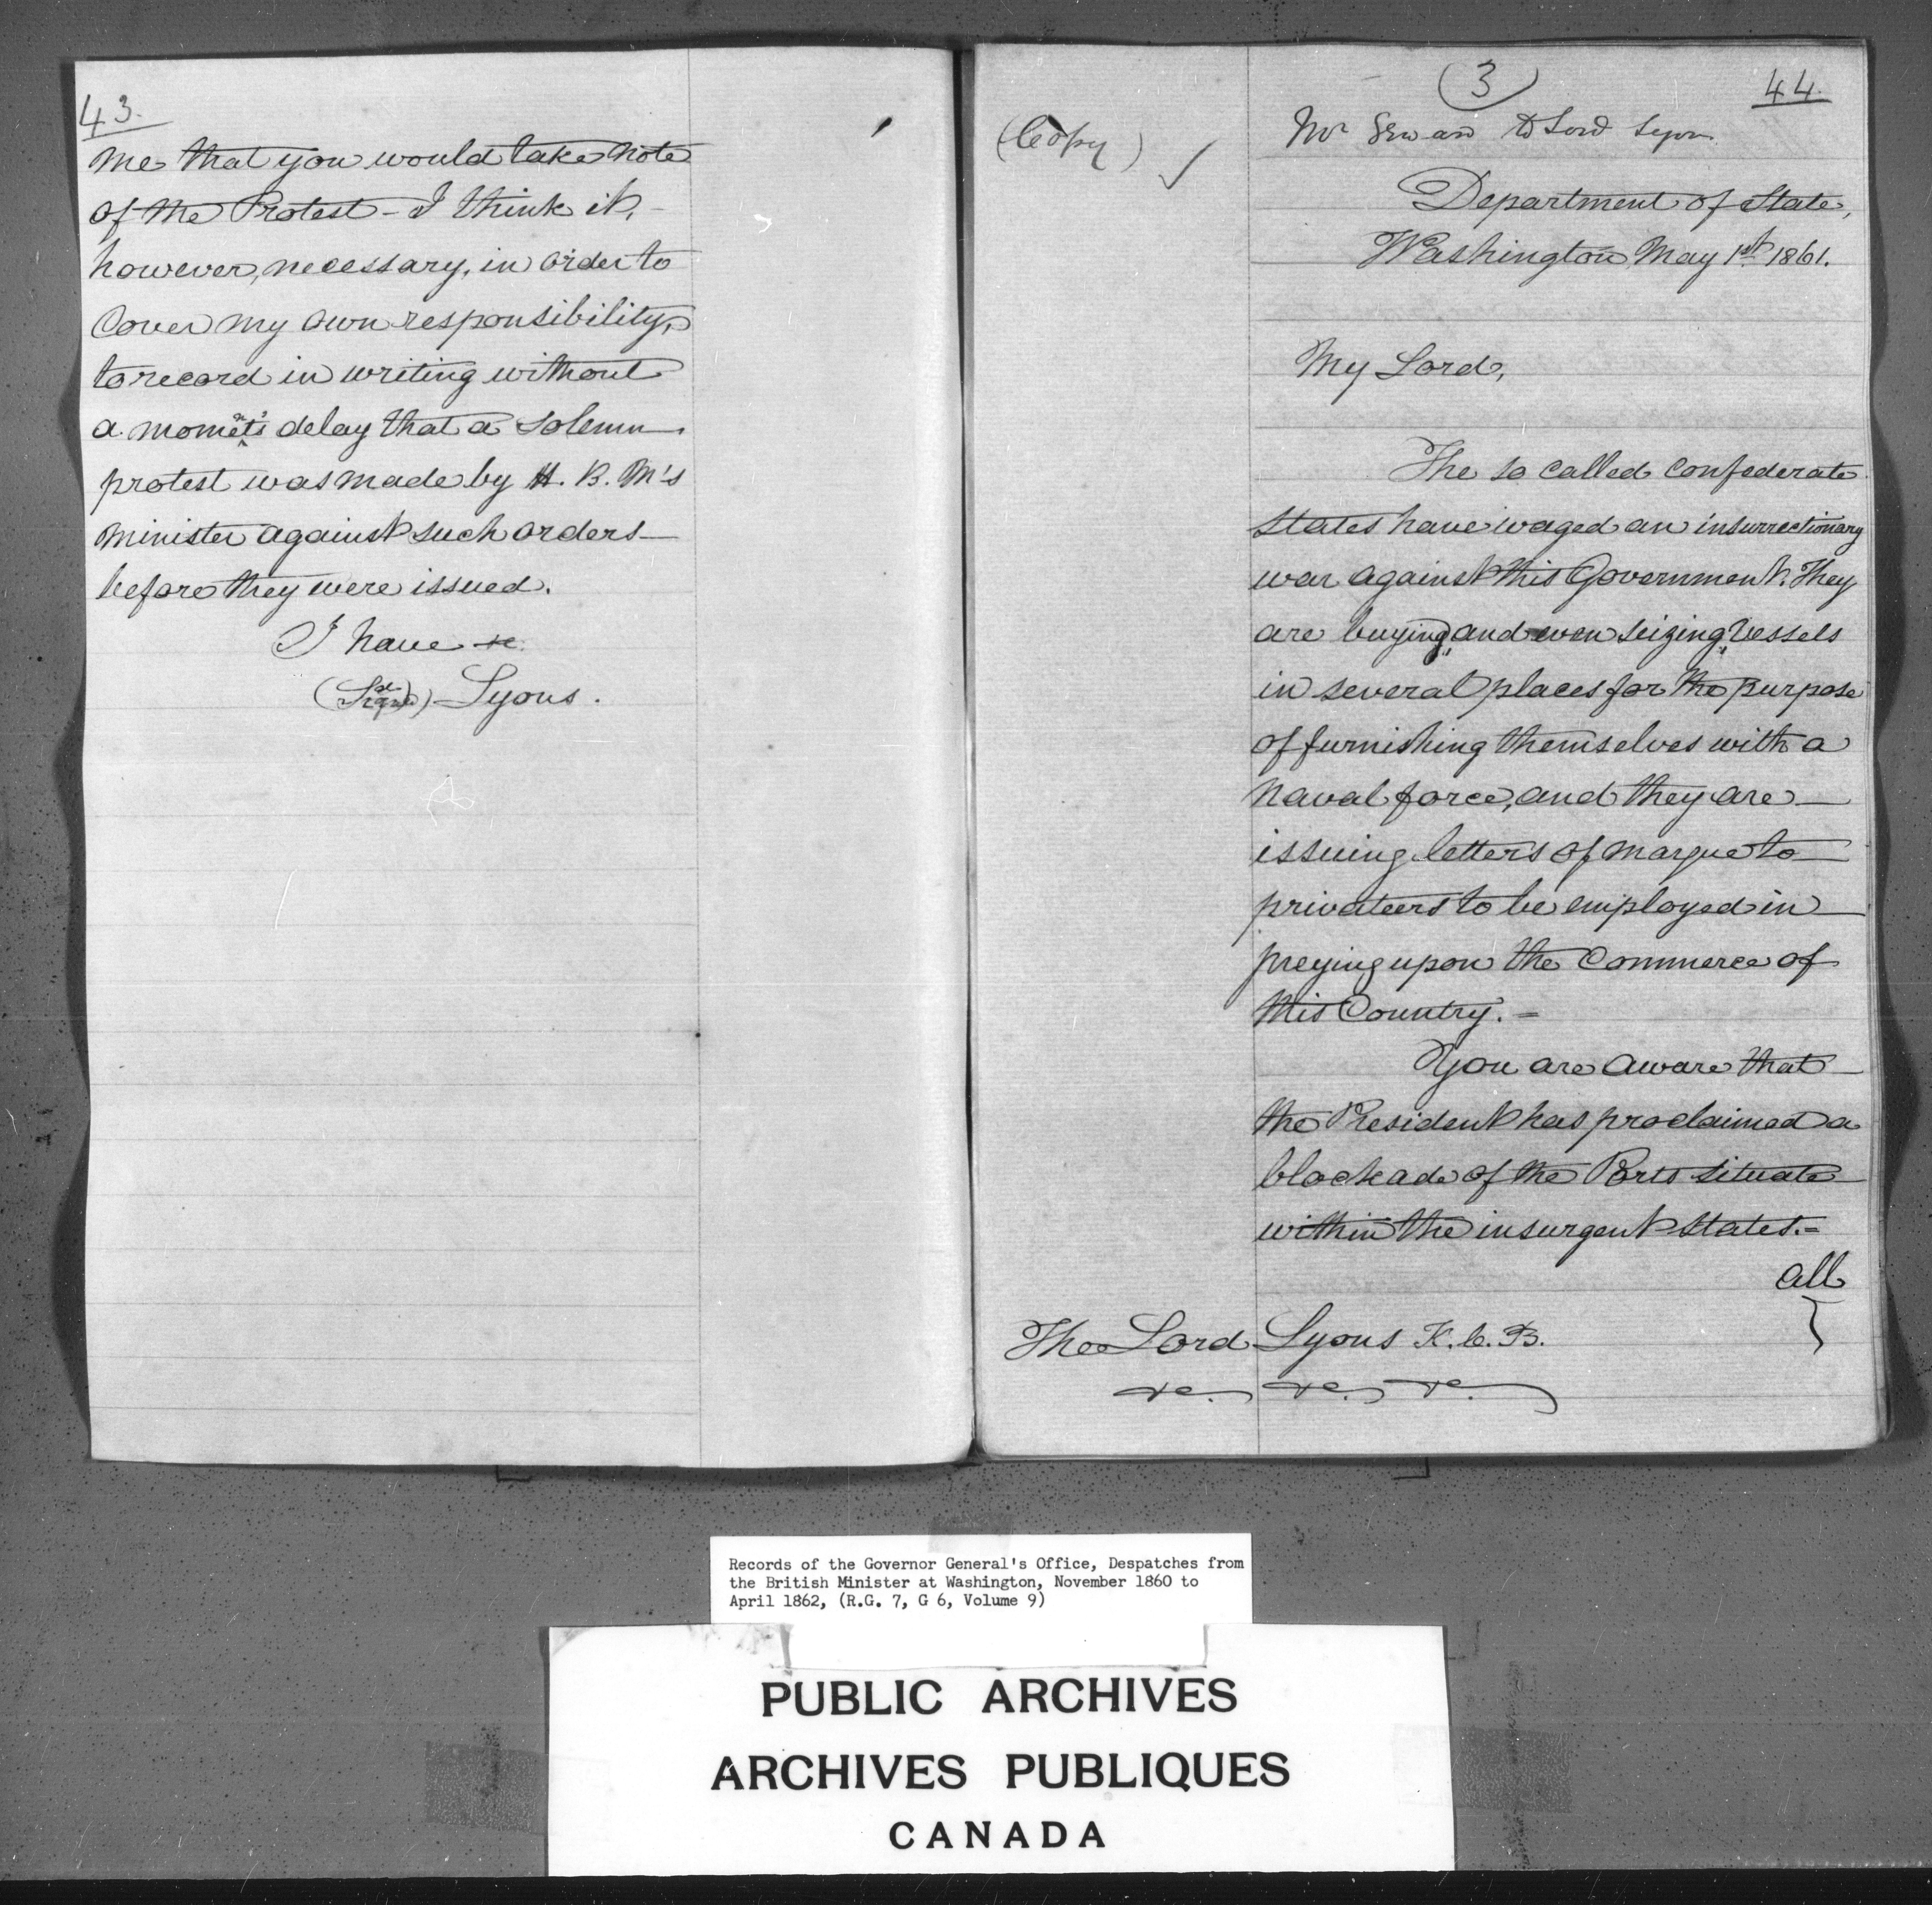 43.
me that you would take note
of the Protest - I think it,
however, necessary, in order to
cover my own responsibility,
to record in writing without
a moment's delay that a solemn
protest was made by H. B. M's
Minister against such orders
before they were issued.
I have &c.
(Signed) Lyons.
(3)
44.
(Copy)
Mr Seward to Lord Lyons
Department of State,
Washington May 1st 1861.
My Lord,
The so called Confederate
States have waged an insurrectionary
war against this Government. They
are buying, and even seizing, vessels
in several places for the purpose
of furnishing themselves with a
Naval force, and they are
issuing letters of marque to
privateers to be employed in
preying upon the Commerce of
this Country. =
You are aware that
the President has proclaimed a
blockade of the Ports situate
within the insurgent States. =
All
The Lord Lyons K.C.B.
&c. &c. &c.
Records of the Governor General's Office, Despatches from
the British Minister at Washington, November 1860 to
April 1862, (R.G. 7, G 6, Volume 9)
PUBLIC ARCHIVES
ARCHIVES PUBLIQUES
CANADA